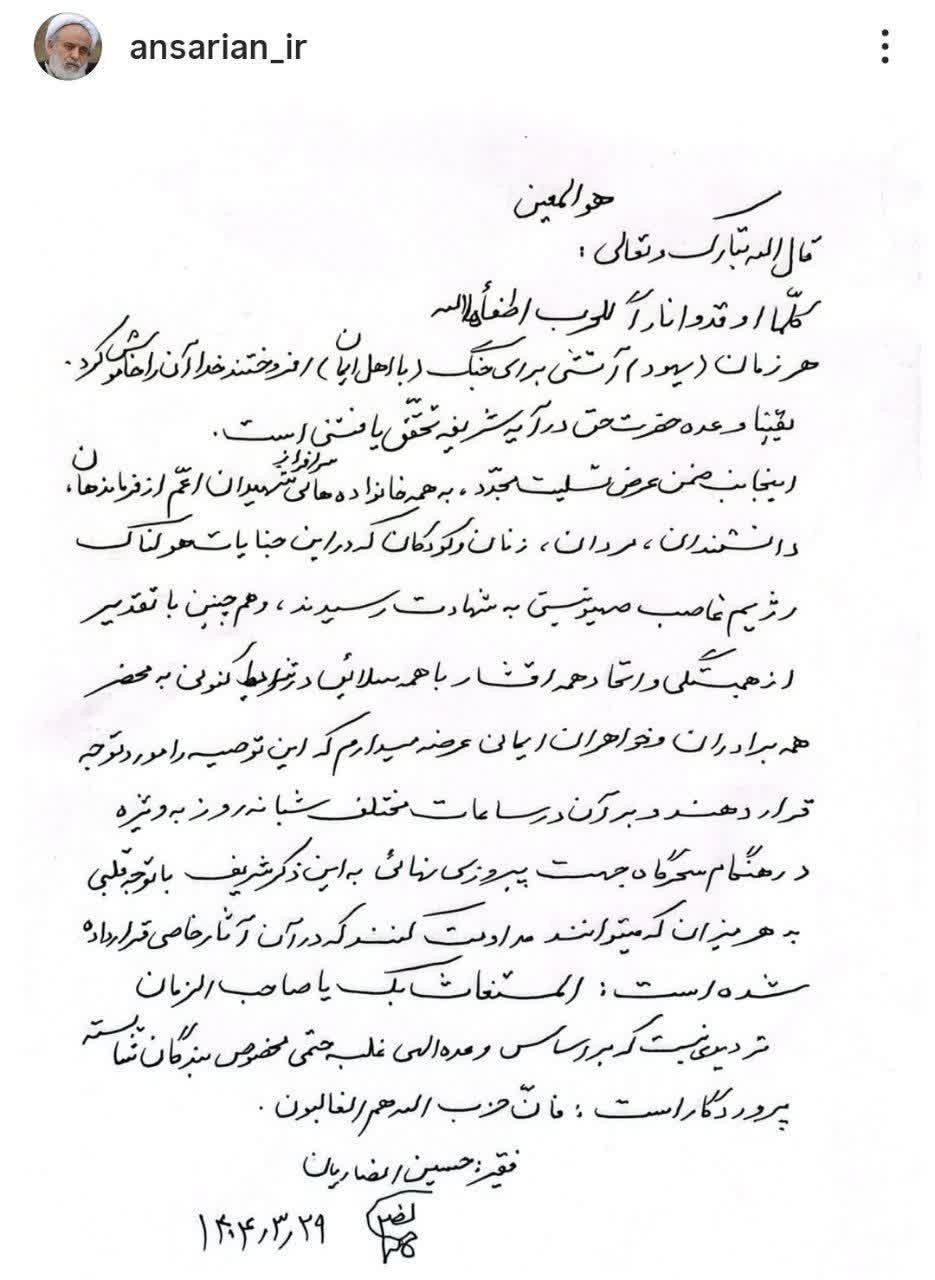 ansarian_ir
هو المعین
قال الله تبارک و تعالی :
کلّما اوقدوا ناراً للحرب اطفأها الله
هر زمان (یهود) آتشی برای جنگ (با اهل ایمان) افروختند خدا آن را خاموش کرد.
یقینا وعده حضرت حق در آیه شریفه تحقّق یافتنی است.
اینجانب ضمن عرض تسلیت مجدّد، به همه خانواده های سرافراز شهیدان اعّم از فرماندهان،
دانشمندان، مردان، زنان و کودکان که در این جنایات هولناک
رژیم غاصب صهیونیستی به شهادت رسیدند، و هم چنین با تقدیر
از همبستگی و اتحاد همه اقشار با همه سلائق در شرایط کنونی به محضر
همه برادران و خواهران ایمانی عرضه میدارم که این توصیه را مورد توجه
قرار دهند و بر آن در ساعات مختلف شبانه روز به ویژه
در هنگام سحرگاه جهت پیروزی نهائی به این ذکر شریف با توجه قلبی
به هر میزان که میتوانند مداومت کنند که در آن آثار خاصی قرار داده
شده است: المستغاث بک یا صاحب الزمان
تردیدی نیست که بر اساس وعده الهی غلبه حتمی مخصوص بندگان شایسته
پروردگار است: فانّ حزب الله هم الغالبون.
فقیر: حسین انصاریان
۱۴۰۴٫۳٫۲۹